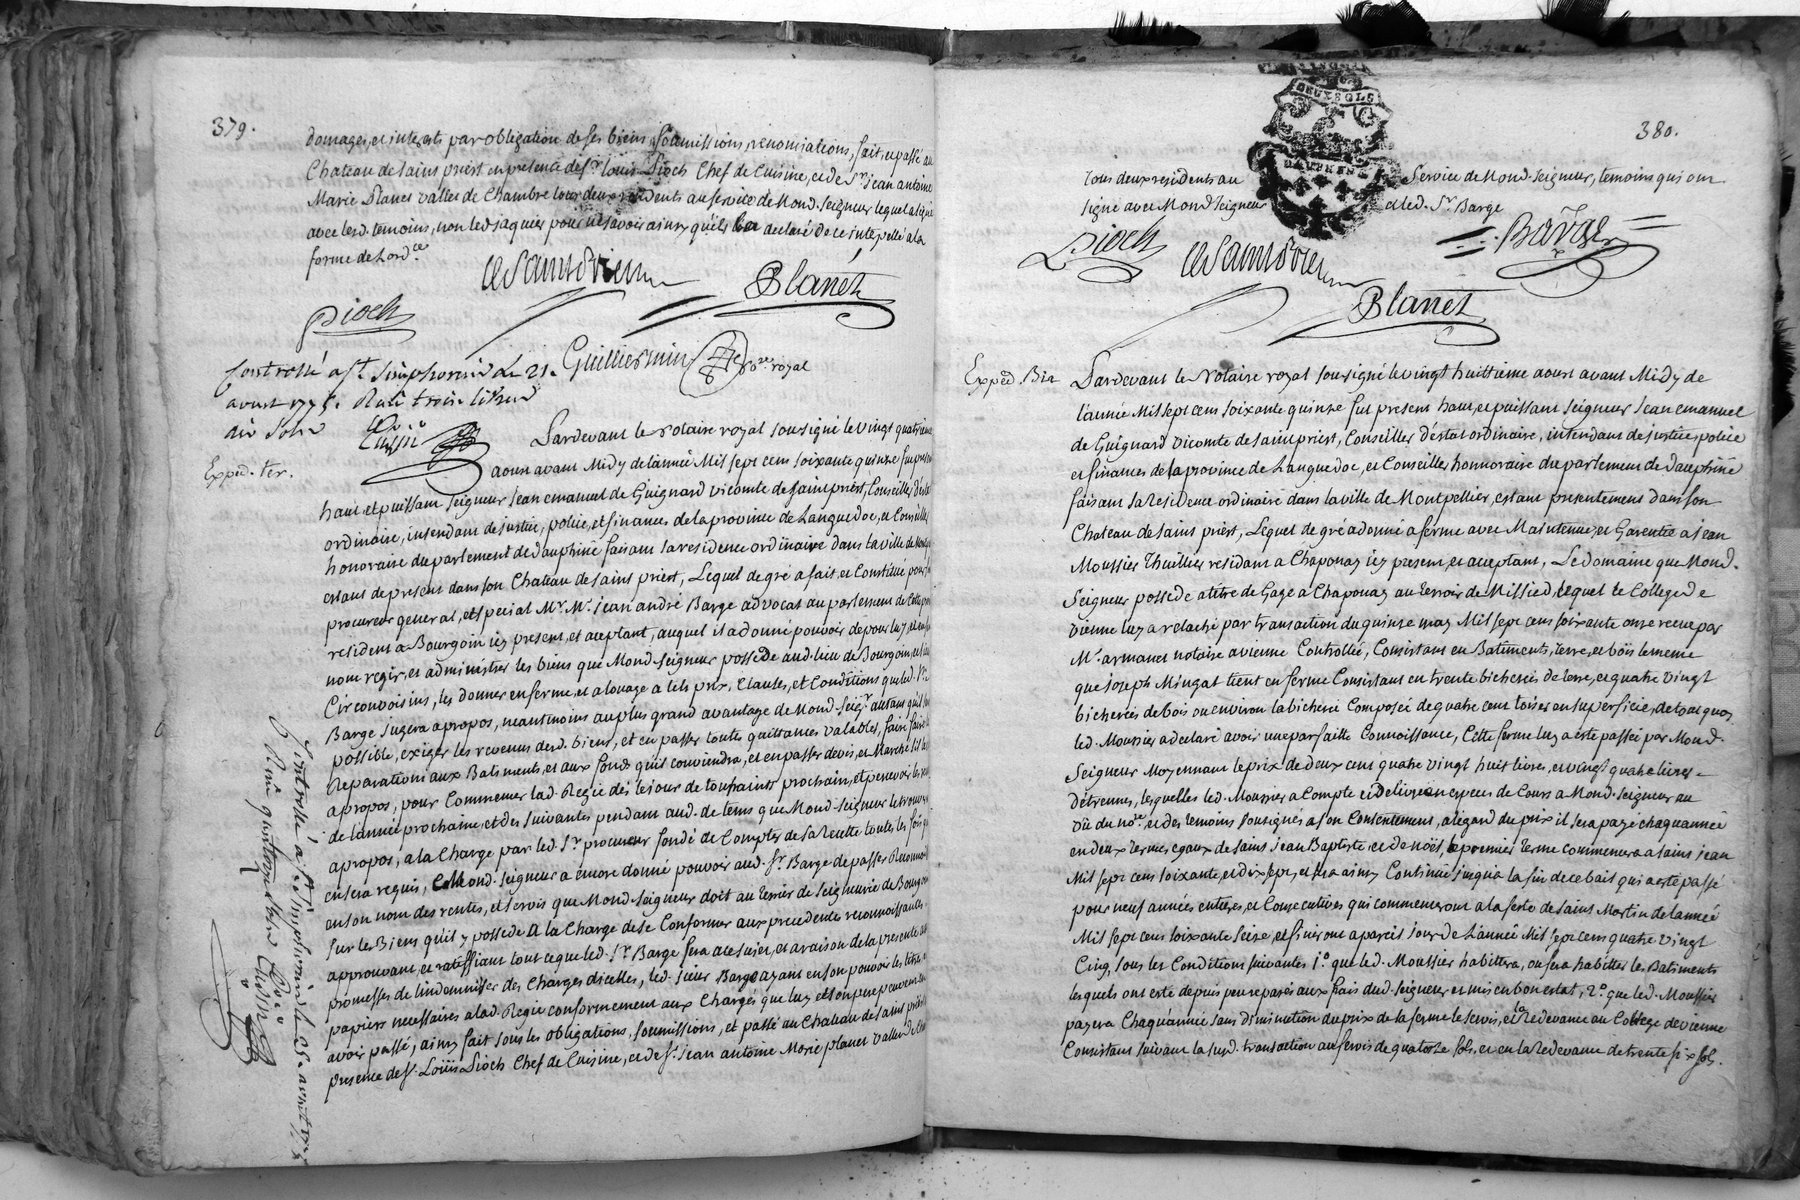 379.
domages, et interets par obligation de ses biens, soumissions, renonciations, fait, et passé au
Chateau de saint priest en presence de sr. louis Pioch Chef de Cuisine, et de sr. jean antoine
Marie Planet vallet de Chambre tous deux residents au service de Mond. seigneur lequel a signé
avec lesd. temoins, non led. jaquier pour ne savoir ainsy qu'il l'a declaré de ce interpellé a la
forme de l'ord.ce
De Saint Priest
Planet
Pioch
Guilliermin no.re royal
Controllé a St. Simphorien le 21.
aoust 1775. Reçu trois livres
dix sols
Pardevant le Notaire royal sousigné le vingt quatrieme
Exped. ter.
aoust avant Midy de l'année Mil sept cent soixante quinze fut present
haut et puissant seigneur jean emanuel de Guignard vicomte de saint priest, Conseiller d'état
ordinaire, intendant de justice, police, et finances de la province de Languedoc, et Conseiller
honoraire du parlement de dauphiné faisant sa residence ordinaire dans la ville de
etant de present dans son Chateau de saint priest, Lequel de gré a fait et Constitué pour son
procureur general, et special Mr. Me. jean andré Barge advocat au parlement de cette
resident a Bourgoin icy present, et aceptant, auquel il a donné pouvoir de pour luy, et en son
nom regir, et administrer les biens que Mond. seigneur possede aud. lieu de Bourgoin, et
Circonvoisins, les donner en ferme, et a louage a tels prix, Clauses, et Conditions que led. Sr.
Barge jugera apropos, neantmoins au plus grand avantage de Mond. seigr. autant qu'il sera
possible, exiger les revenus desd. biens, et en passer toutes quittances valables, faire faire
Reparations aux Batiments, et aux fonds qu'il conviendra, et en passer devis, et Marché s'il le
apropos, pour Commencer lad. Regie dés le jour de toussaints prochain, et percevoir les
de l'année prochaine et des suivantes pendant aud. de tems que Mond. seigneur le trouvera
apropos, a la Charge par led. sr. procureur fondé de Compter de sa Recette toutes les fois qu'il
en sera requis, et Mond. seigneur a encore donné pouvoir aud. sr. Barge de passer Reconnoissance
en son nom des rentes, et servis que Mond. seigneur doit au terrier de seigneurie de Bourgoin
sur les Biens qu'il y possede a la Charge de se Conformer aux precedentes reconnoissances
approuvant, et ratiffiant tout ce que led. sr. Barge fera a ce sujet, et a raison de la presente
promesses de l'indemniser des Charges d'icelles, led. sieur Barge ayant en son pouvoir les titres
papiers necessaires a lad. Regie conformement aux Charges que luy et son pere peuvent en
avoir passé, ainsy fait sous les obligations, soumissions, et passé au Chateau de saint priest
presence de sr. Loüis Pioch Chef de Cuisine, et de sr. jean antoine Marie planet vallet de
Controllé a St. Simphorien le 25. aoust 1775
Reçu quatorze sols
380.
DEUX SOLS
DAUPHINE
tous deux residents au Service de Mond. seigneur, temoins qui ont
signé avec Mond seigneur et led. sr. Barge
Pioch
De Saint Priest
Barge
Planet
Exped. Bis
Pardevant le Notaire royal sousigné le vingt huittieme aoust avant Midy de
l'année Mil sept cent soixante quinze fut present haut, et puissant seigneur jean emanuel
de Guignard vicomte de saint priest, Conseiller d'état ordinaire, intendant de justice, police
et finances de la province de Languedoc, et Conseiller honnoraire du parlement de dauphiné
faisant sa residence ordinaire dans la ville de Montpellier, estant presentement dans son
Chateau de saint priest, Lequel de gré a donné a ferme avec Maintenue, et Garentie a jean
Moussier Thuillier resident a Chaponay icy present, et aceptant, Le domaine que Mond.
Seigneur possede a titre de Gage a Chaponay au terroir de Missied, lequel le College de
vienne luy a relaché par transaction du quinze may Mil sept cent soixante onze recue par
Me. armanet notaire a vienne Controllée, Consistant en Batiments, terre, et bois le meme
que joseph Mingat tient en ferme Consistant en trente bicherées de terre, et quatre vingt
bicherées de bois ou environ la bicherée Composée de quatre cent toises en superficie, de tout quoy
led. Moussier a declaré avoir une parfaitte Connoissance, Cette ferme luy a été passée par Mond.
Seigneur Moyennant le prix de deux cent quatre vingt huit livres, et vingt quatre livres
d'étrennes, lesquelles led. Moussier a Compté et délivré en especes de Cours a Mond. seigneur au
vû du no.re et des temoins sousignés a son Contentement, a legard du prix il sera payé chaque année
en deux termes egaux de saint jean Baptiste et de noel, le premier terme commencera a saint jean
Mil sept cent soixante, et dix sept, et sera ainsy Continué jusqu'a la fin de ce bail qui a esté passé
pour neuf années entieres, et Consecutives qui commenceront a la feste de saint Martin de l'année
Mil sept cent soixante seize, et finiront a pareil jour de l'année Mil sept cent quatre vingt
Cinq, sous les Conditions suivantes 1o. que led. Moussier habittera, ou fera habitter les Batiments
lesquels ont esté depuis peu reparés aux frais dud. seigneur et mis en bon estat, 2o. que led. Moussier
payera Chaqu'année sans diminution du prix de la ferme le servis, et la Redevance au College de vienne
Consistant suivant la susd. transaction au servis de quatorze sols, et en la redevance de trente six sols.